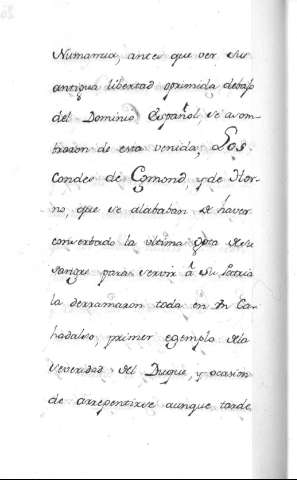 Numancia, antes que ver, su
antigua libertad oprimida debajo
del Dominio Español, se asom-
braron de esta venida; Los
Condes de Egmond, y de Hor-
no, que se alababan de haver
conservado la ultima Gota de su
sangre para servir à su Patria
la derramaron toda en un Ca-
hadalso, primer egemplo de la
severidad del Duque, y ocasion
de arrepentirse aunque tarde